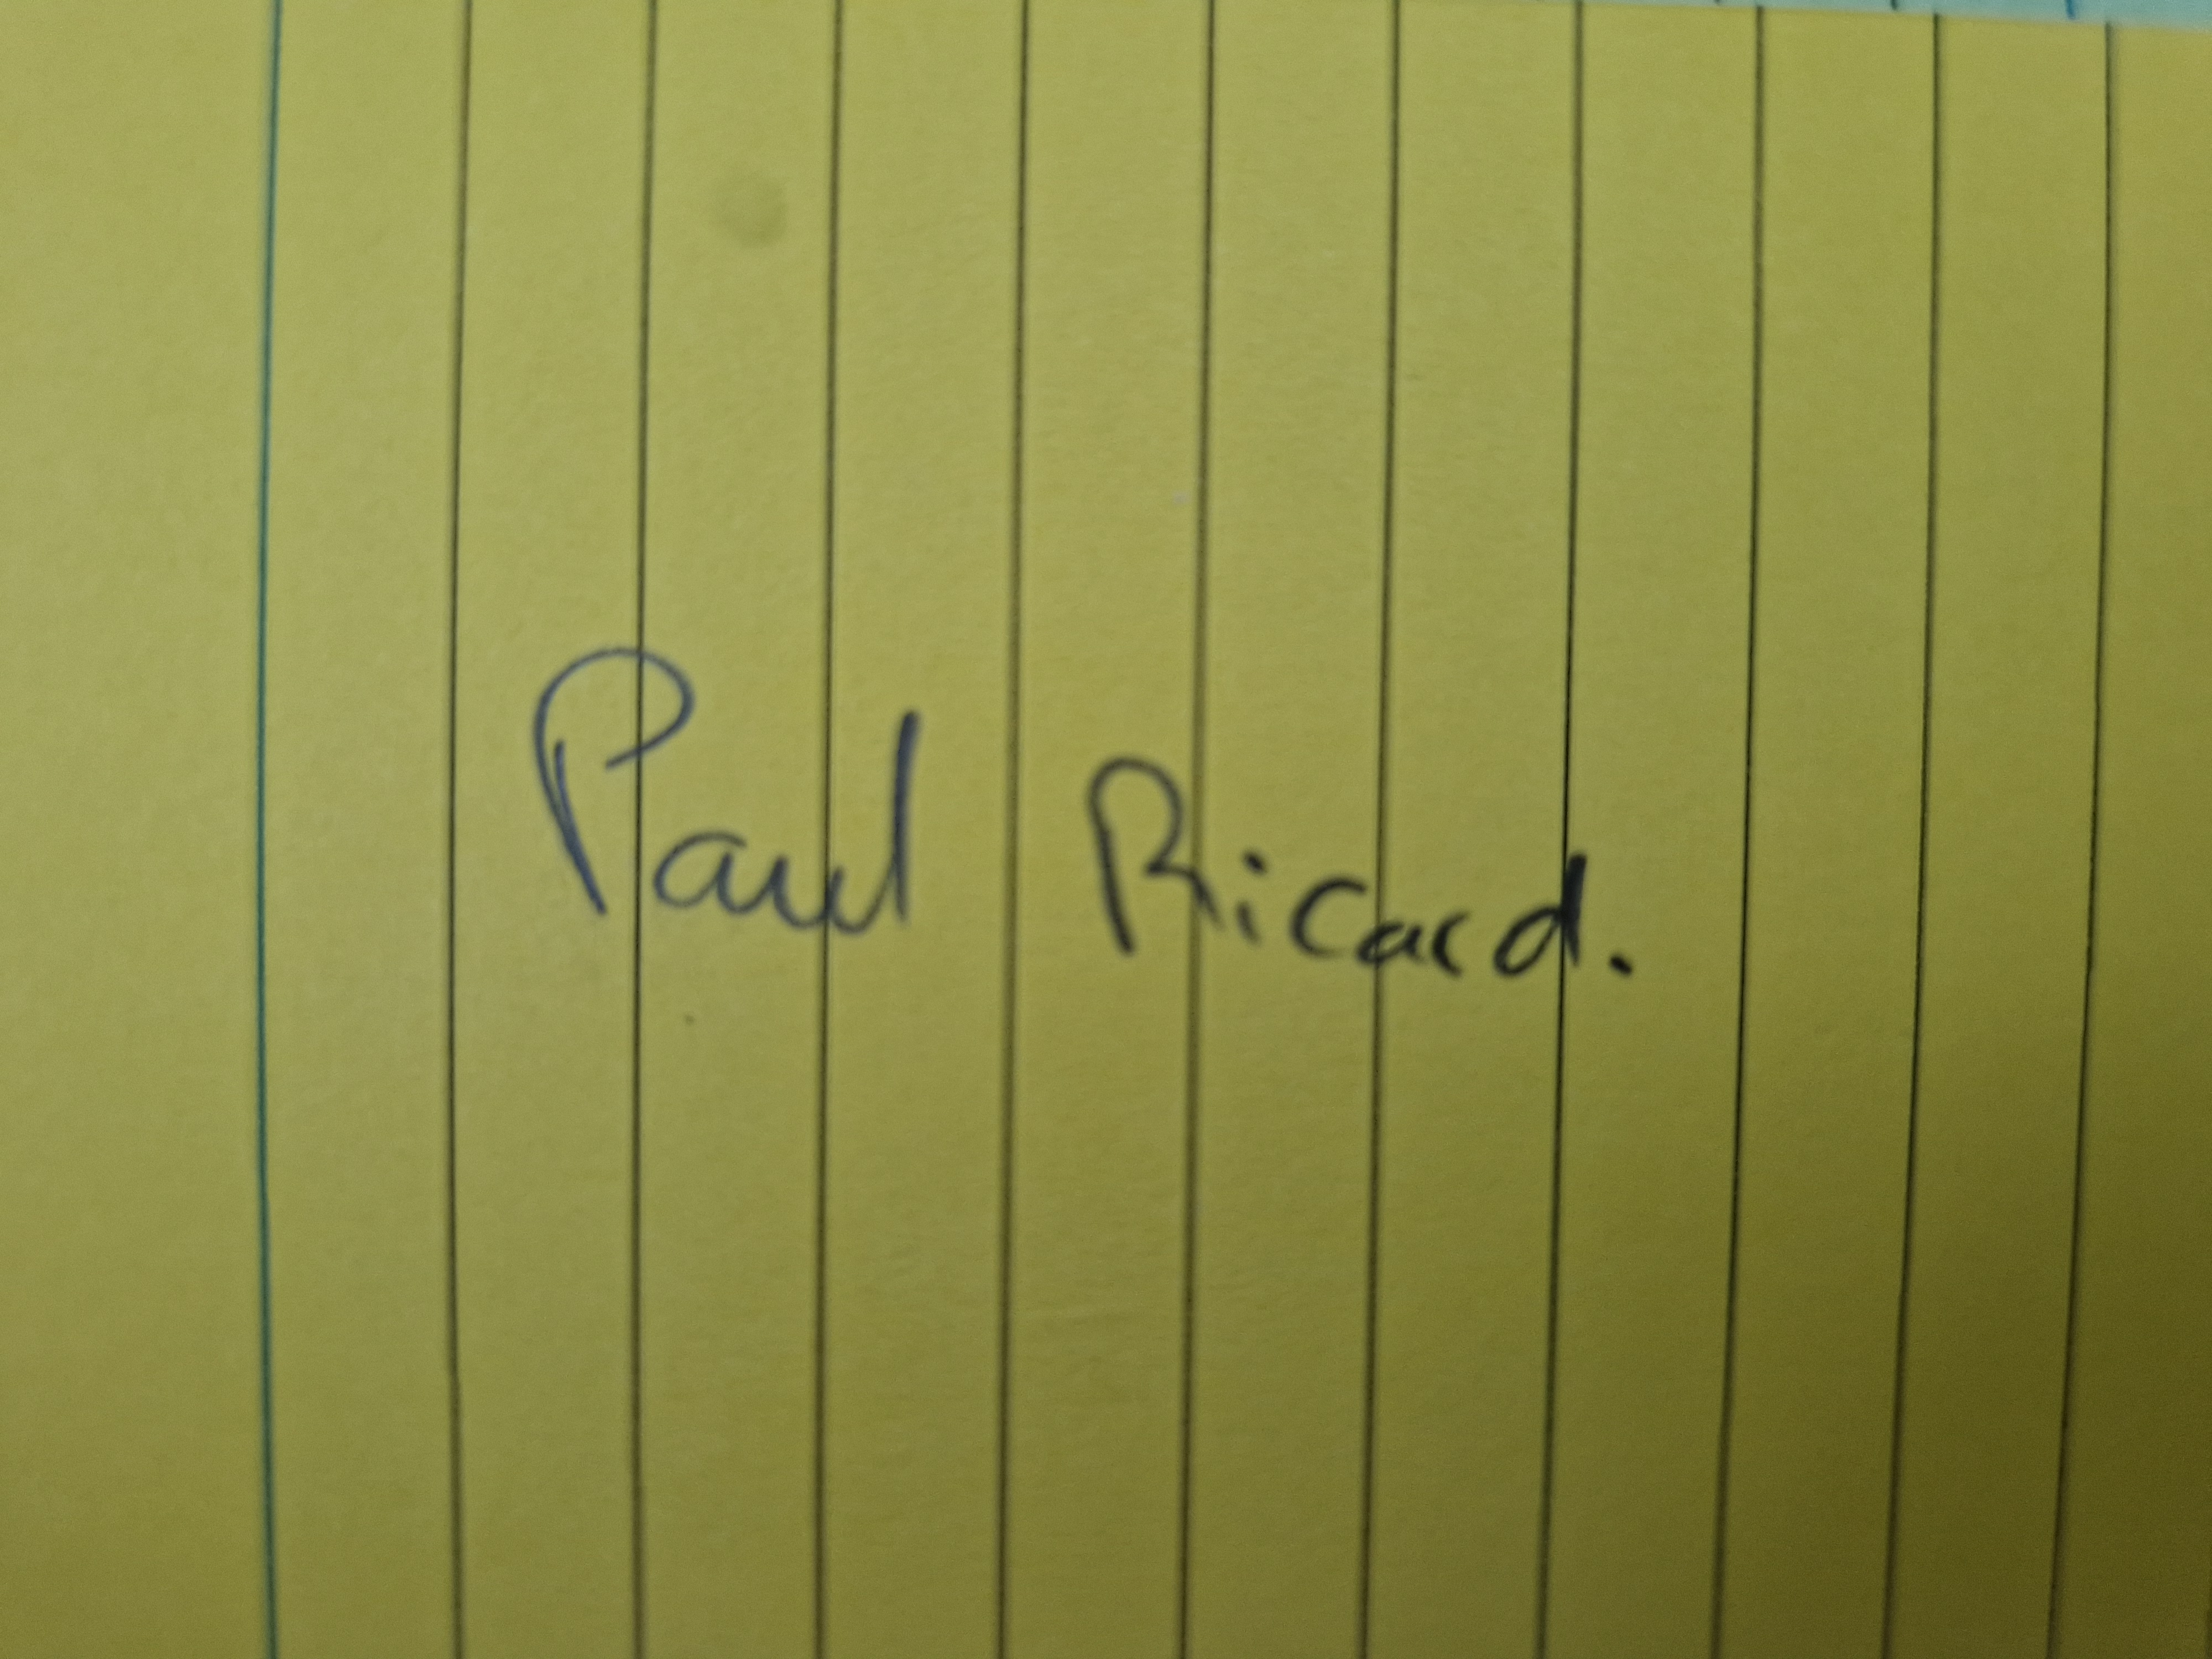 Paul Ricard.